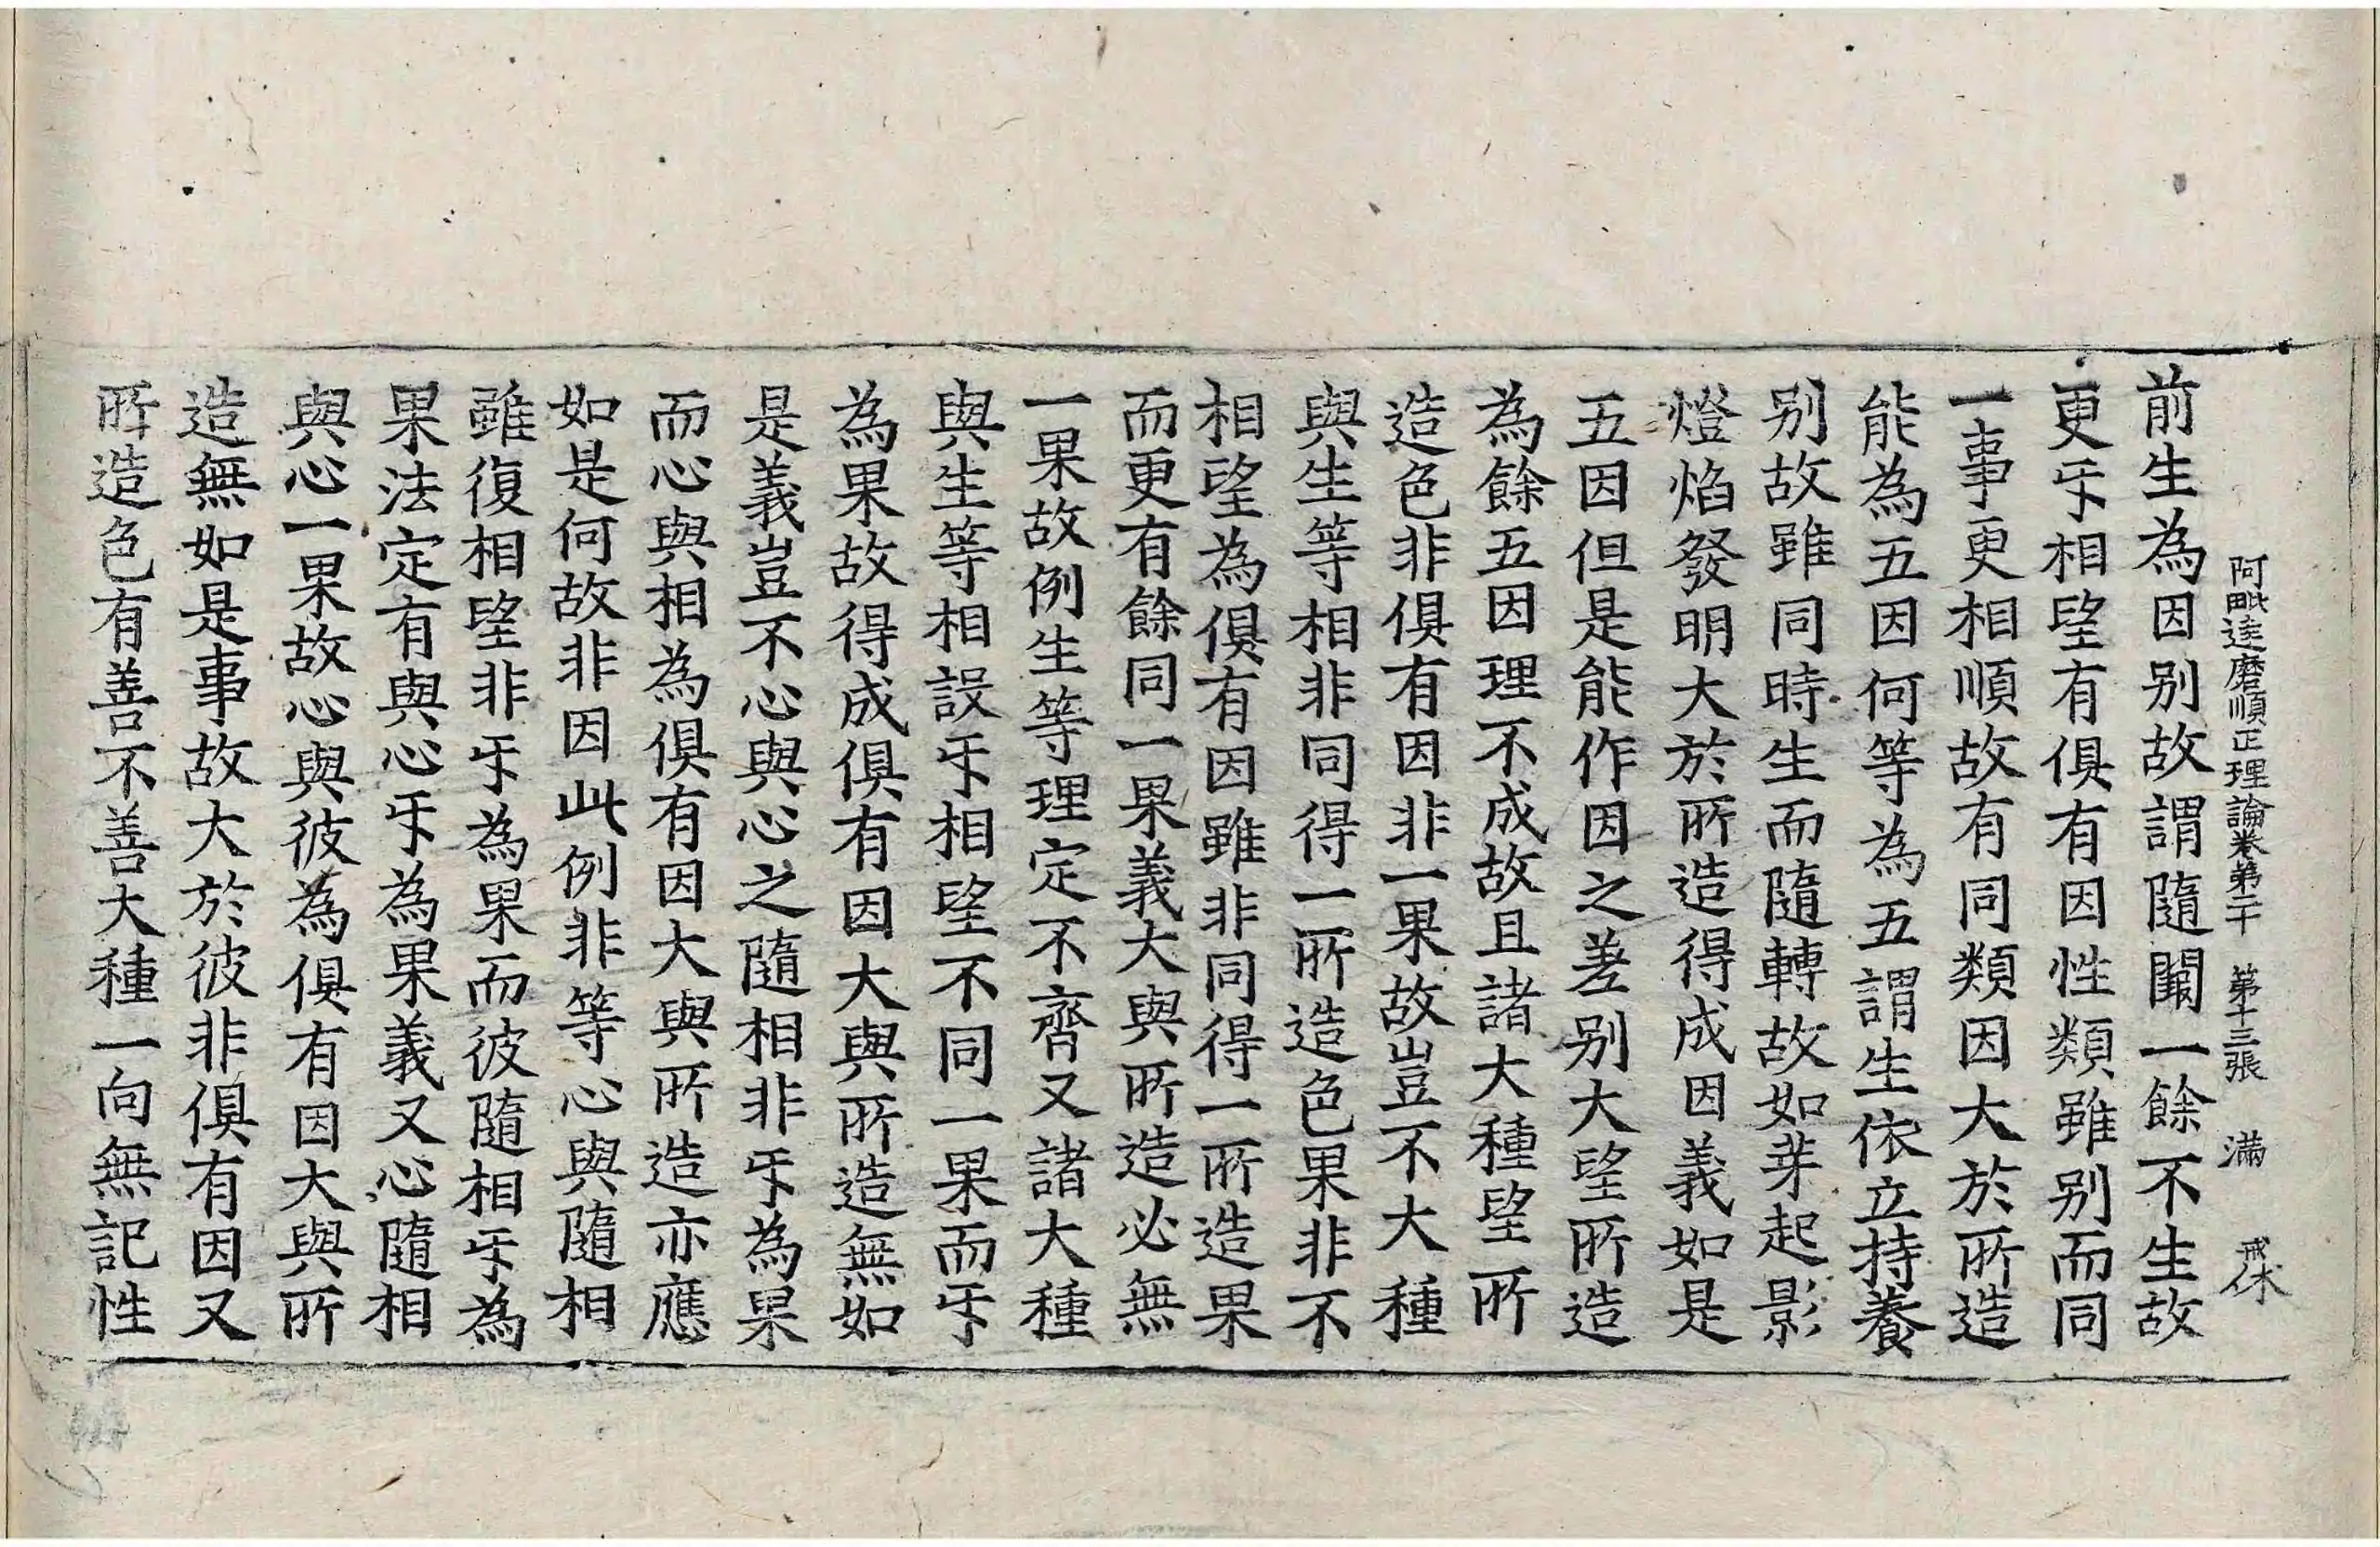 阿毗達磨順正理論卷第二十　第十三張　滿　戒休
前生為因别故謂隨闕一餘不生故
更㸦相望有俱有因性類雖别而同
一事更相順故有同類因大於所造
能為五因何等為五謂生依立持養
别故雖同時生而隨轉故如芽起影
燈焰發明大於所造得成因義如是
五因但是能作因之差别大望所造
為餘五因理不成故且諸大種望所
造色非俱有因非一果故豈不大種
與生等相非同得一所造色果非不
相望為俱有因雖非同得一所造果
而更有餘同一果義大與所造必無
一果故例生等理定不齊又諸大種
與生等相設㸦相望不同一果而㸦
為果故得成俱有因大與所造無如
是義豈不心與心之隨相非㸦為果
而心與相為俱有因大與所造亦應
如是何故非因此例非等心與隨相
雖復相望非㸦為果而彼隨相㸦為
果法定有與心㸦為果義又心隨相
與心一果故心與彼為俱有因大與所
造無如是事故大於彼非俱有因又
所造色有善不善大種一向無記性